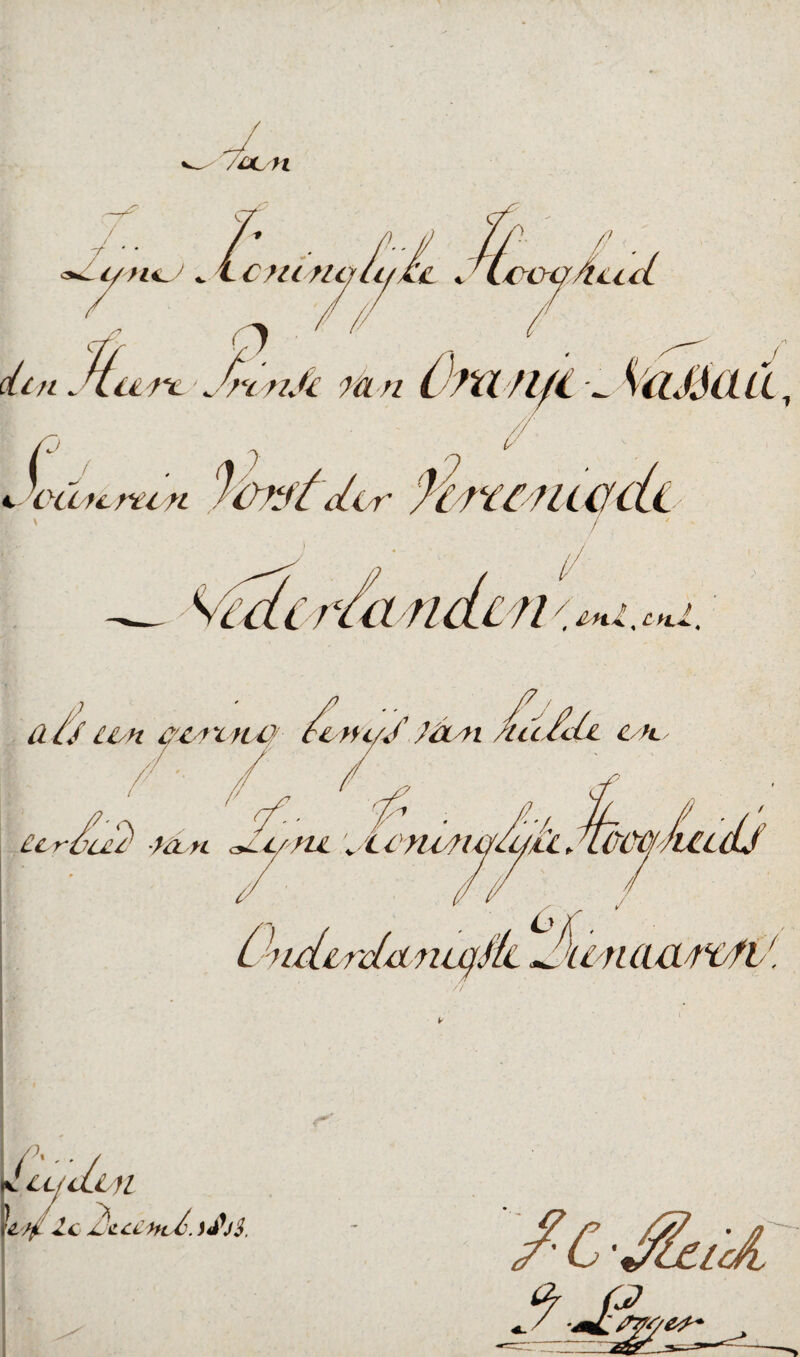 Aan
Zyne Koninglyke Hoogheid
den Heere Prinse van Oranje-Nassau,
Souverein Vorst der Vereenigde
Nederlanden, enz. enz.
als een gering bewys van hulde en
eerbied van Zyne Koninglyke Hoogheids
Onderdanigste Dienaaren.
Leyden
Decemb. 1813.
J C Reich
J.